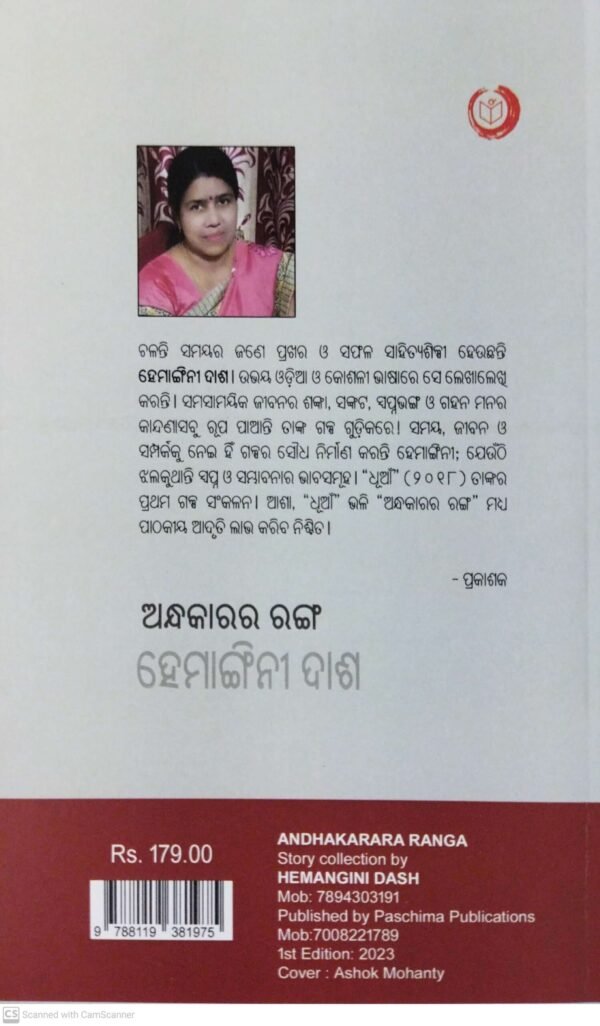 ଚଳନ୍ତି ସମୟର ଜଣେ ପ୍ରଖର ଓ ସଫଳ ସାହିତ୍ୟଶିଳ୍ପୀ ହେଉଛନ୍ତି
ହେମାଙ୍ଗିନୀ ଦାଶ। ଉଭୟ ଓଡ଼ିଆ ଓ କୋଶଳୀ ଭାଷାରେ ସେ ଲେଖାଲେଖି
କରନ୍ତି। ସମସାମୟିକ ଜୀବନର ଶଙ୍କା, ସଙ୍କଟ, ସପ୍ନଭଙ୍ଗ ଓ ଗହନ ମନର
କାନ୍ଦଣାସବୁ ରୂପ ପାଆନ୍ତି ତାଙ୍କ ଗଳ୍ପ ଗୁଡ଼ିକରେ। ସମୟ, ଜୀବନ ଓ
ସମ୍ପର୍କକୁ ନେଇ ହିଁ ଗଳ୍ପର ସୌଧ ନିର୍ମାଣ କରନ୍ତି ହେମାଙ୍ଗିନୀ; ଯେଉଁଠି
ଝଲକୁଥାନ୍ତି ସପ୍ନ ଓ ସମ୍ଭାବନାର ଭାବସମୂହ। “ଧୂଆଁ” (୨୦୧୮) ତାଙ୍କର
ପ୍ରଥମ ଗଳ୍ପ ସଂକଳନ। ଆଶା, “ଧୂଆଁ” ଭଳି “ଅନ୍ଧକାରର ରଙ୍ଗ” ମଧ୍ୟ
ପାଠକୀୟ ଆଦୃତି ଲାଭ କରିବ ନିଶ୍ଚିତ।
- ପ୍ରକାଶକ
ଅନ୍ଧକାରର ରଙ୍ଗ
ହେମାଙ୍ଗିନୀ ଦାଶ
Rs. 179.00
9 788119 381975
ANDHAKARARA RANGA
Story collection by
HEMANGINI DASH
Mob: 7894303191
Published by Paschima Publications
Mob:7008221789
1st Edition: 2023
Cover : Ashok Mohanty
CS Scanned with CamScanner